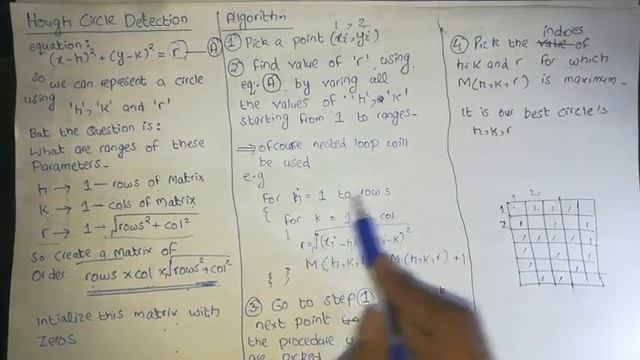 Hough Circle Detection
equation:
(x-h)² + (y-k)² = r — A
so we can represent a circle
using 'h', 'k' and 'r'
But the Question is:
what are ranges of these
Parameters-
h → 1 — rows of Matrix
k → 1 — cols of matrix
r → 1 — √rows² + col²
So create a Matrix of
Order rows x col x √rows² + col²
Intialize this matrix with
zeros
Algorithm
1, 2
① Pick a point (xi, yi)
② find value of 'r', using
eq. A by varing all
the values of 'h', 'k'
starting from 1 to ranges-
⇒ ofcourse nested loop will
be used
e.g
for h = 1 to rows
{ for k = 1 col
{ r = √(xi-h) -k)²
M(h,k, M(h,k,r) + 1
} }
③ Go to step ①
next point
the procedure
are picked
④ Pick the indcies of
h,k and r for which
M(h,k,r) is maximum-
It is our best circle's
h,k,r
1 2
1
2